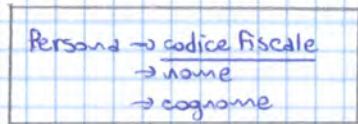 Persona → codice fiscale
→ nome
→ cognome